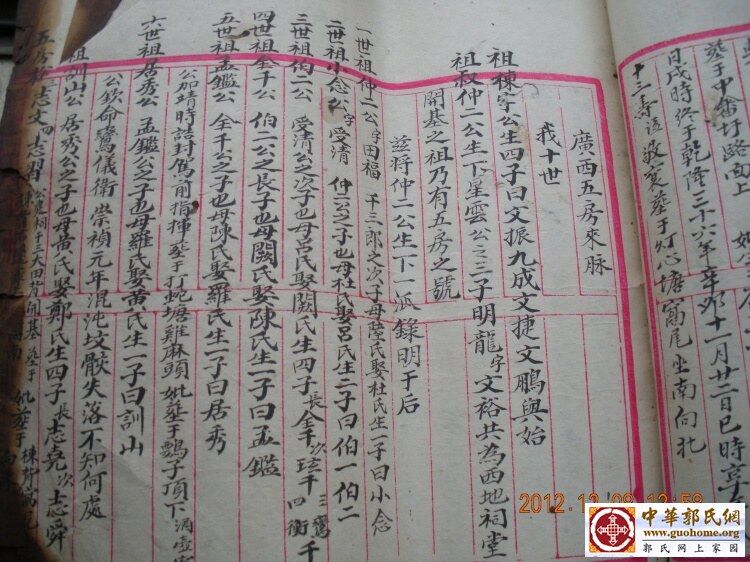 墓于中番圩路面上
日戌時終于乾隆三十六年辛卯十一月廿二日巳時享
窩尾坐南向北
廣西五房來脉
我十世
祖棟宇公生四子曰文振九成文捷文鵬與始
祖叔仲二公生下星雲公之三子明龍字文裕共為西地祠堂
開基之祖乃有五房之號
茲将仲二公生下一派錄明于后
一世祖仲二公字田福 千三郎之次子母陸氏娶杜氏生一子曰小念
二世祖小念公字受清 仲二公之子也母杜氏娶呂氏生二子曰伯一伯二
三世祖伯二公 受清公之次子也母呂氏娶闕氏生四子長全千次玹千三鸞千四衡
四世祖全千公 伯二公之長子也母闕氏娶陳氏生一子曰孟鑑
五世祖孟鑑公 全千公之子也母陳氏娶羅氏生一子曰居秀
六世祖居秀公 孟鑑公之子也母羅氏娶黄氏生一子曰訓山
公加靖時誥封駕前指揮葬于打蛇塘雞麻頭妣葬于鷄子頂下
公欽命鸞儀衛 崇禎元年混沌坟骸失落不知何處
祖訓山公 居秀公之子也母黄氏娶鄭氏生四子長志堯次志舜
五房 志文四志習
2012.12.09 12:58
中華郭氏網
www.guohome.org
郭氏網上家園